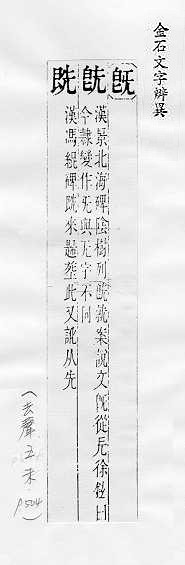 金石文字辨異
旣 旣 既
漢景北海碑陰㮄列旣敦案說文旣從旡徐鉉曰
今隸變作旡與无字不同
漢馮緄碑既來趨葬此又訛从先
(去聲五未
P.504)